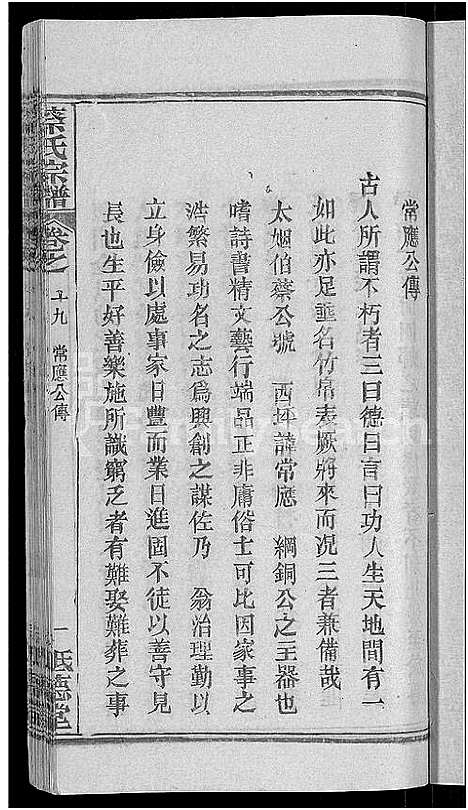 常應公傳
古人所謂不朽者三曰德曰言曰功人生天地間有一
如此亦足垂名竹帛表厥將來而况三者兼備哉
太姻伯蔡公號 西坪諱常應 綱銅公之玉器也
嗜詩書精文藝行端品正非庸俗士可比因家事之
浩繁易功名之志爲興創之謀佐乃 翁治理勤以
立身儉以處事家日豐而業日進固不徒以善守見
長也生平好善樂施所識窮乏者有難娶難葬之事
蔡氏宗譜
卷之十九 常應公傳
一
德堂
FamilySearch